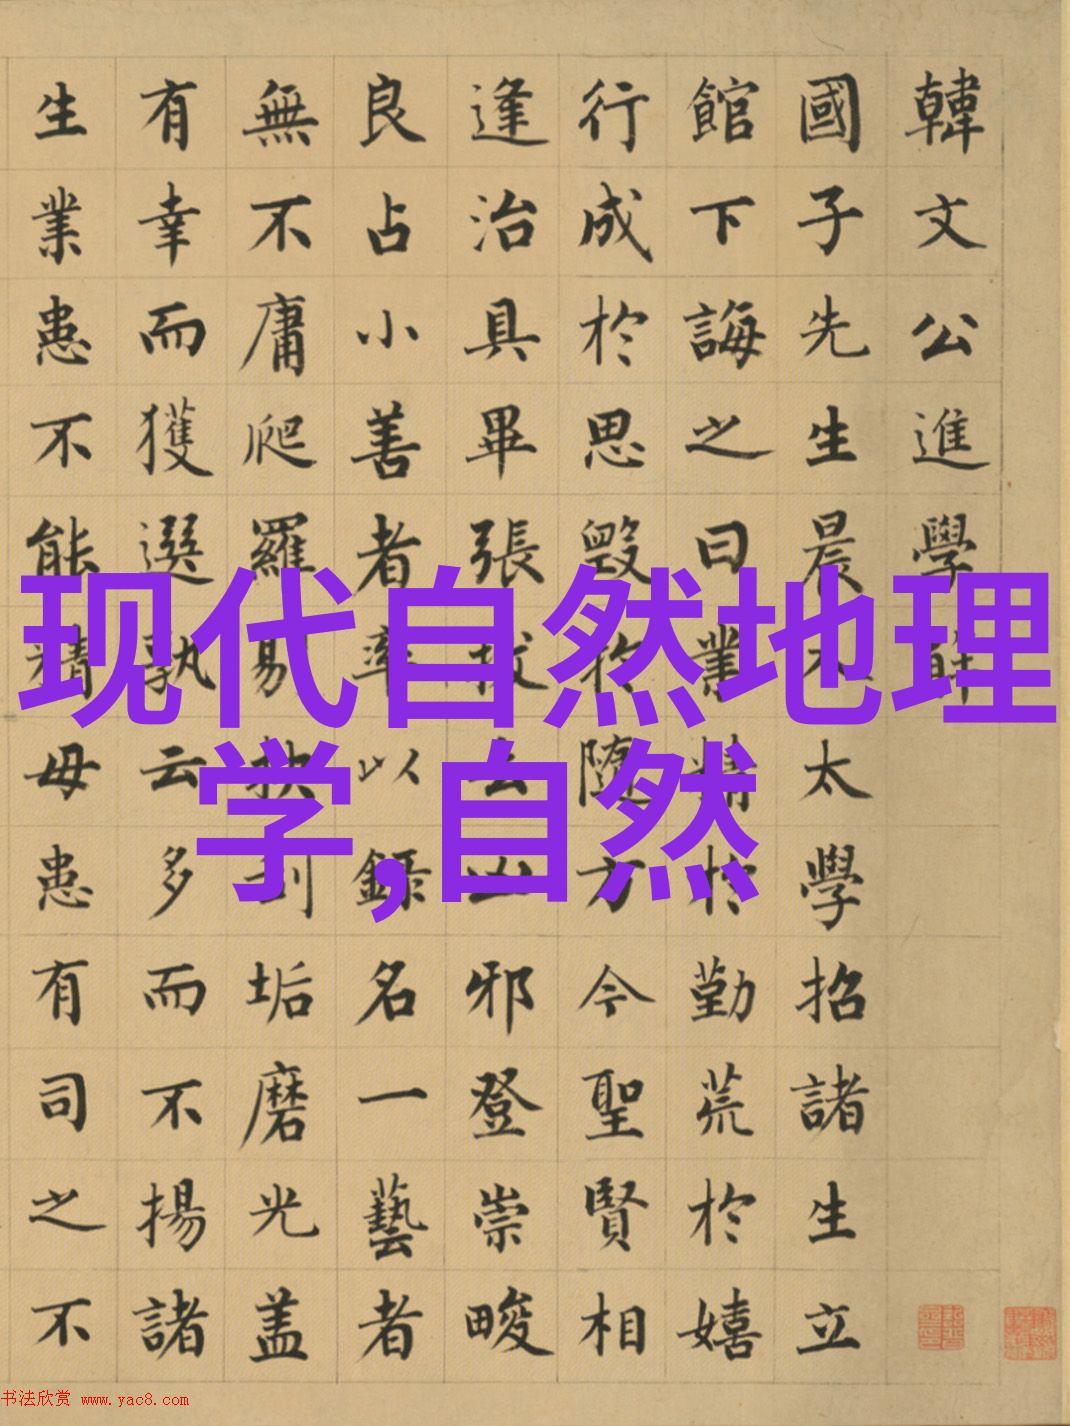 韓文公進學解
國子先生晨入太學招諸生立
館下誨之曰業精於勤荒於嬉
行成於思毀於隨方今聖賢相
逢治具畢張拔去凶邪登崇畯
良占小善者率以錄名一藝者
無不庸爬羅剔抉刮垢磨光盖
有幸而獲選孰云多而不揚諸
生業患不能精毋患有司之不
现代自然地理
学,自然
书法欣赏 www.yac8.com